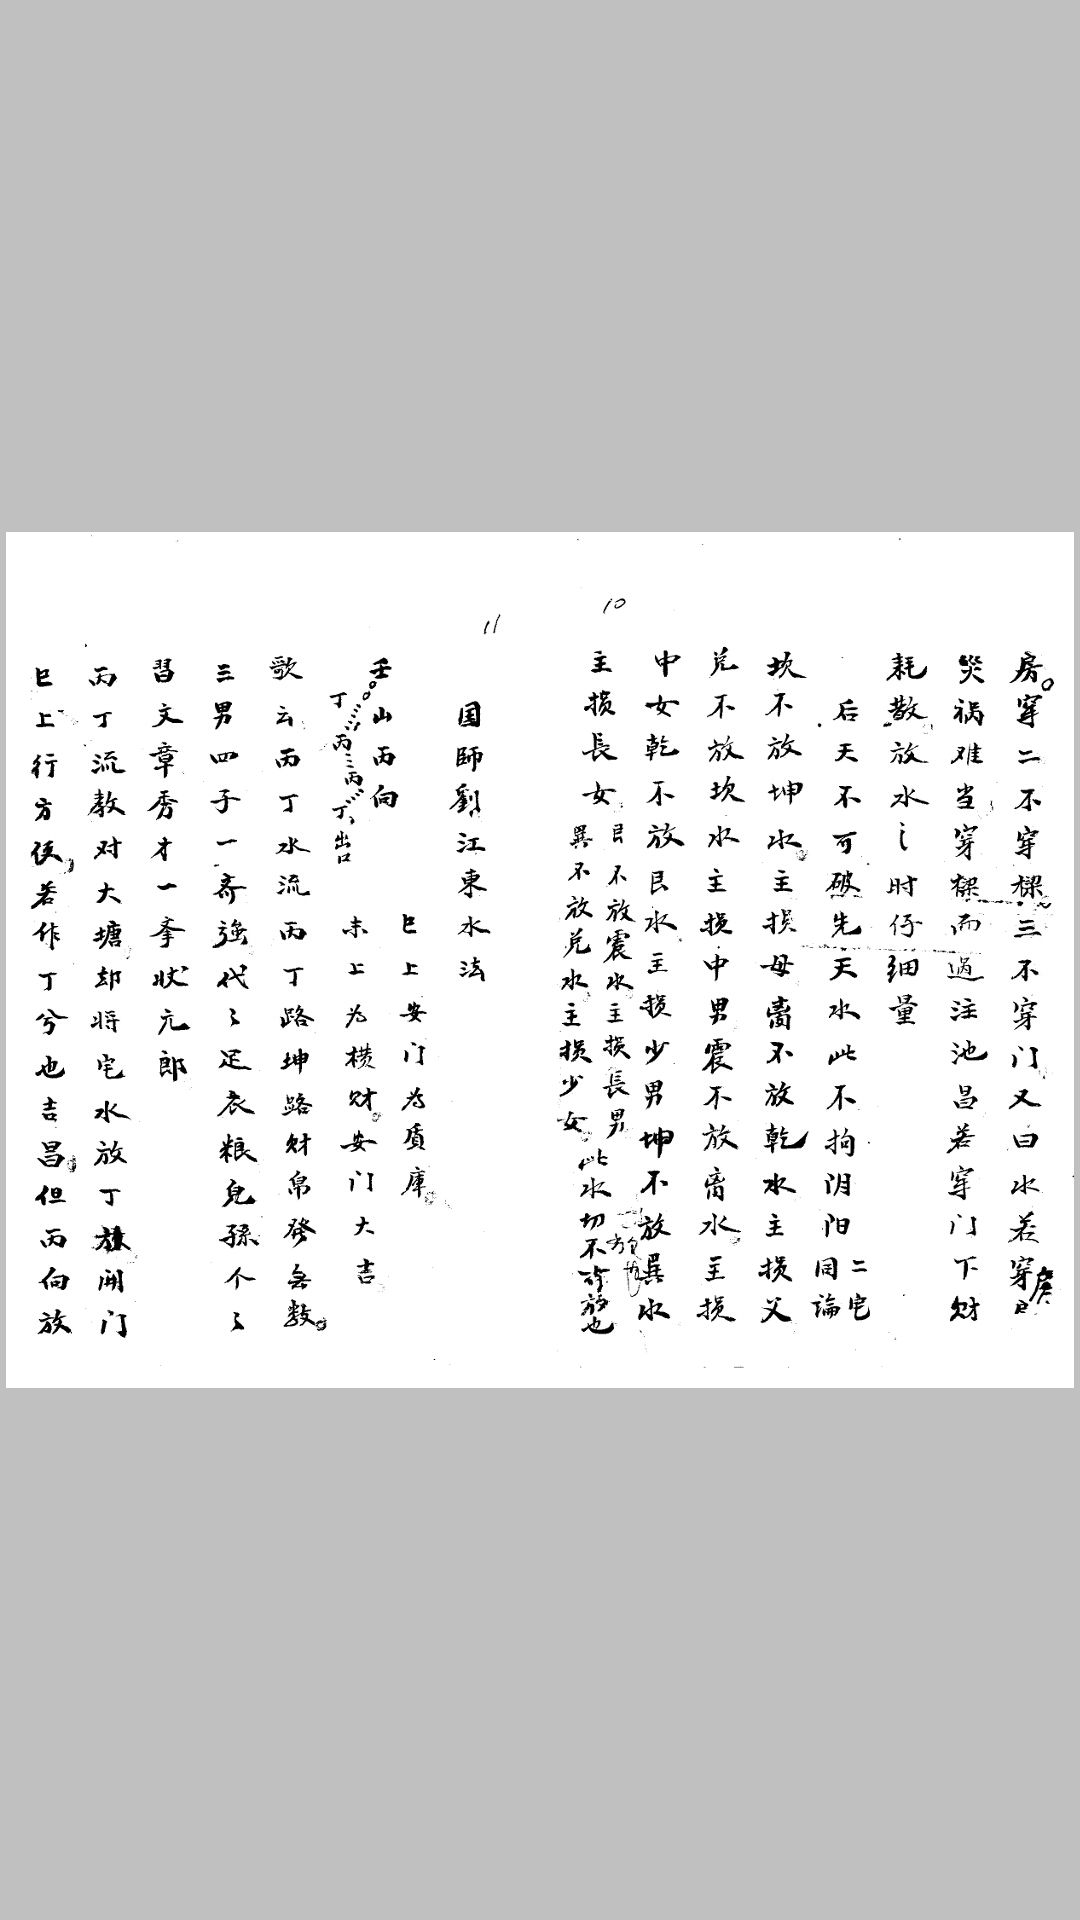 10
房穿二不穿樑三不穿门又曰水若穿房
災祸难当穿樑而過注池昌若穿门下财
耗散放水之时仔细量
后天不可破先天水此不拘阴阳二宅同論
坎不放坤水主损母离不放乾水主损父
兑不放坎水主损中男震不放离水主损
中女乾不放艮水主损少男坤不放巽水
主损長女艮不放震水主损長男
巽不放兑水主损少女
此水切不可放也
11
国師劉江東水法
巳上安门为质庫
壬山丙向
未上为横财安门大吉
丁丙三丙丁出口
歌云丙丁水流丙丁路坤路财帛發无数
三男四子一齐強代〻足衣粮兒孫个〻
習文章秀才一举状元郎
丙丁流教对大塘却将宅水放丁旗開门
巳上行方便若作丁兮也吉昌但丙向放